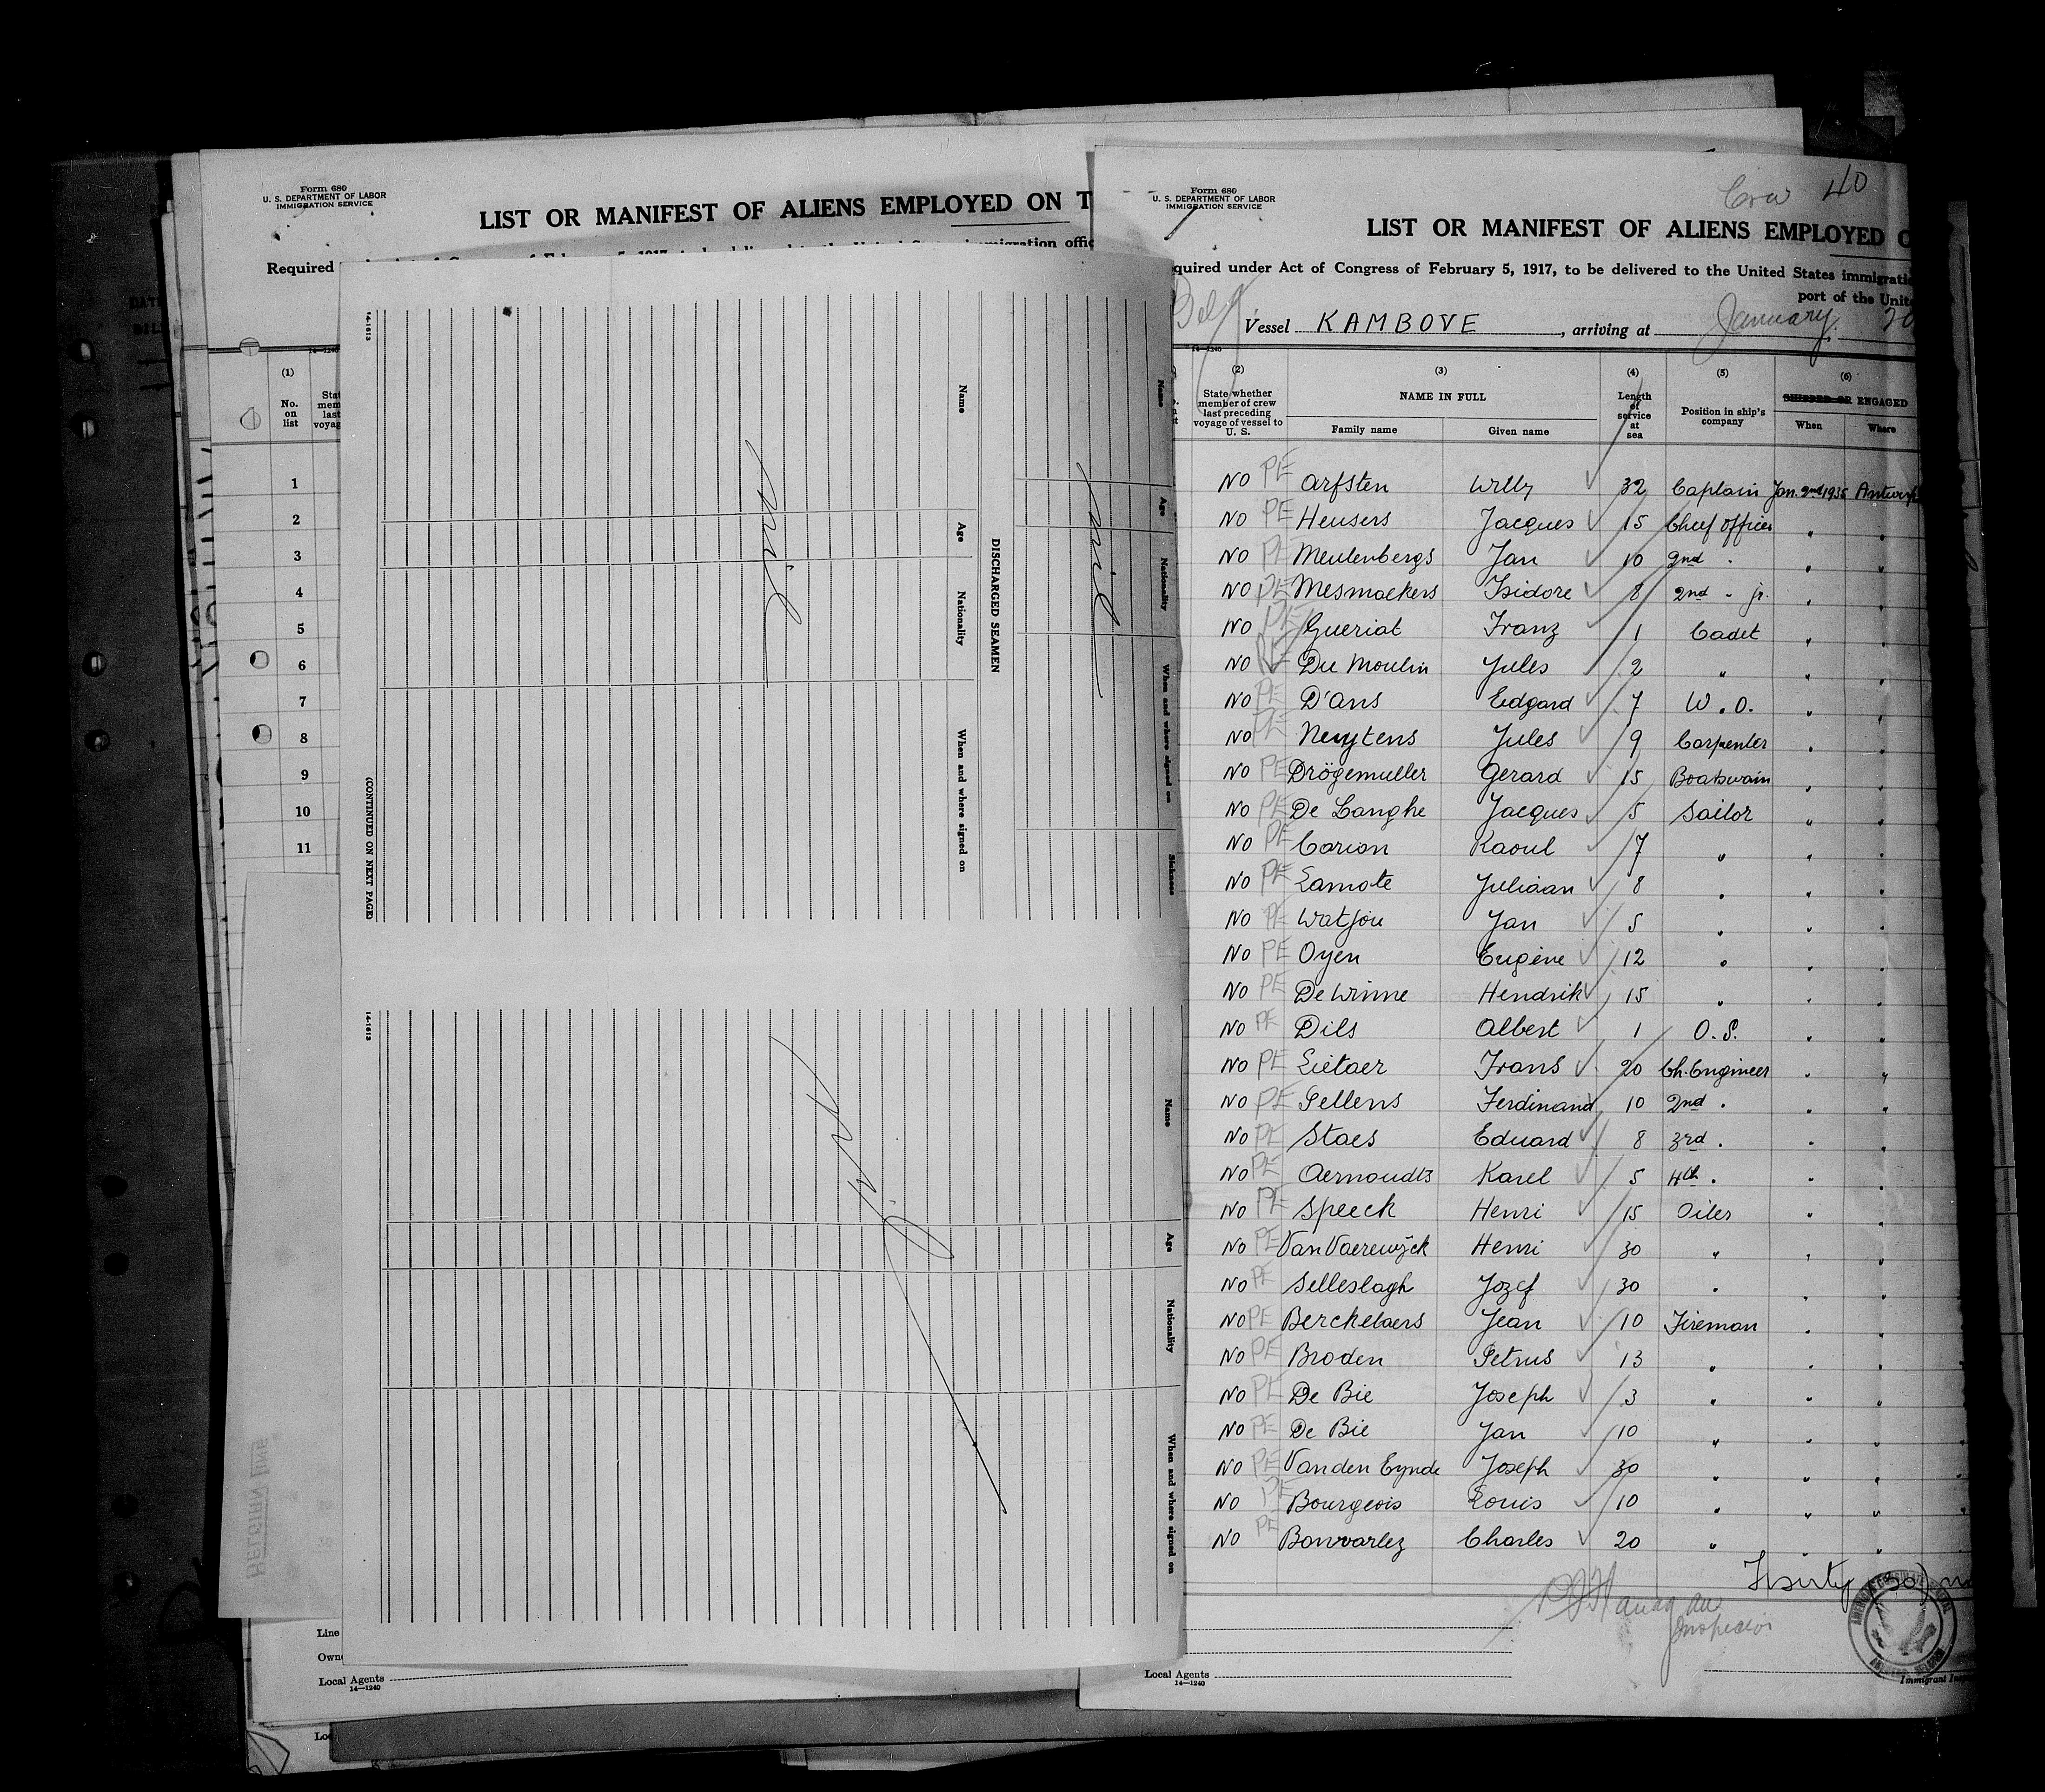 Form 680
U. S. DEPARTMENT OF LABOR
IMMIGRATION SERVICE
LIST OR MANIFEST OF ALIENS EMPLOYED ON T
Required
(1)
No. on list
1
2
3
4
5
6
7
8
9
10
11
Line
Local Agents
14—1240
14-1613
Name Age Nationality When and where signed on Sickness
Nil
DISCHARGED SEAMEN
Name Age Nationality When and where signed on
Nil
(CONTINUED ON NEXT PAGE)
14-1613
Name Age Nationality When and where signed on
Nil
BELGIAN LINE
Crew 40
Form 680
U. S. DEPARTMENT OF LABOR
IMMIGRATION SERVICE
LIST OR MANIFEST OF ALIENS EMPLOYED O
quired under Act of Congress of February 5, 1917, to be delivered to the United States immigratio
port of the Unite
Belg
Vessel KAMBOVE , arriving at January 20
14—1240
(2) (3) (4) (5) (6)
State whether member of crew last preceding voyage of vessel to U. S. NAME IN FULL Length of service at sea Position in ship's company SHIPPED OR ENGAGED
Family name Given name When Where
NO PE Arfsten Willy 32 Captain Jan. 2nd 1935 Antwerp
NO PE Heusers Jacques 15 Chief Officer " "
NO PE Meulenbergs Jan 10 2nd " " "
NO PE Mesmaekers Isidore 8 2nd " jr. " "
NO PE Gueriat Franz 1 Cadet " "
NO PE Du Moulin Jules 2 " " "
NO PE D'Ans Edgard 7 W.O. " "
NO PE Neuytens Jules 9 Carpenter " "
NO PE Drögemuller Gerard 15 Boatswain " "
NO PE De Langhe Jacques 5 Sailor " "
NO PE Carion Raoul 7 " " "
NO PE Lamote Juliaan 8 " " "
NO PE Watjou Jan 5 " " "
NO PE Oyen Eugène 12 " " "
NO PE De Winne Hendrik 15 " " "
NO PE Dils Albert 1 O.S. " "
NO PE Lietaer Frans 20 Ch. Engineer " "
NO PE Pellens Ferdinand 10 2nd " " "
NO PE Staes Eduard 8 3rd " " "
NO PE Aernoudts Karel 5 4th " " "
NO PE Speeck Henri 15 Oiler " "
NO PE Van Vaerewijck Henri 30 " " "
NO PE Selleslagh Jozef 30 " " "
NO PE Berckelaers Jean 10 Fireman " "
NO PE Broden Petrus 13 " " "
NO PE De Bie Joseph 3 " " "
NO PE De Bie Jan 10 " " "
NO PE Vanden Eynde Joseph 30 " " "
NO PE Bourgeois Louis 10 " " "
NO PE Bonvarlez Charles 20 " " "
Thirty (30)
Inspector
Local Agents
14—1240
Immigrant Insp